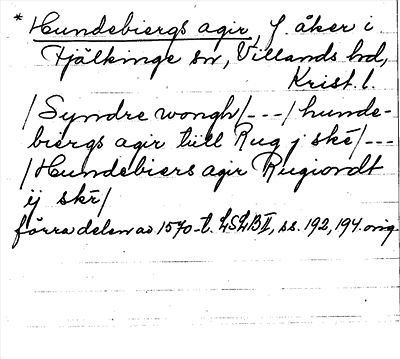 * Hundebiergs agir, f. åker i
Fjälkinge sn, Villands hd,
Krist. l.
/Syndre wongh/---/hunde-
biergs agir tiill Rug j skė/---
/Hundebiers agir Rugiordt
ij skr/
förra delen av 1570-t. LSLB II, ss. 192, 194. orig.